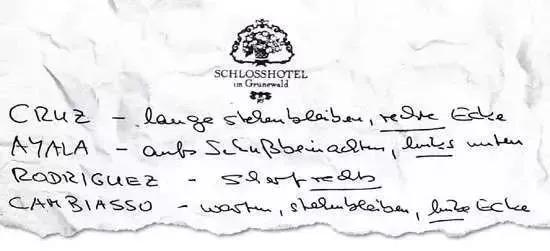 SCHLOSSHOTEL
im Grunewald
CRUZ - lange stehenbleiben, rechte Ecke
AYALA - aufs Schußbein achten, links unten
RODRIGUEZ - rechts
CAMBIASSO - warten, stehnbleiben, linke Ecke